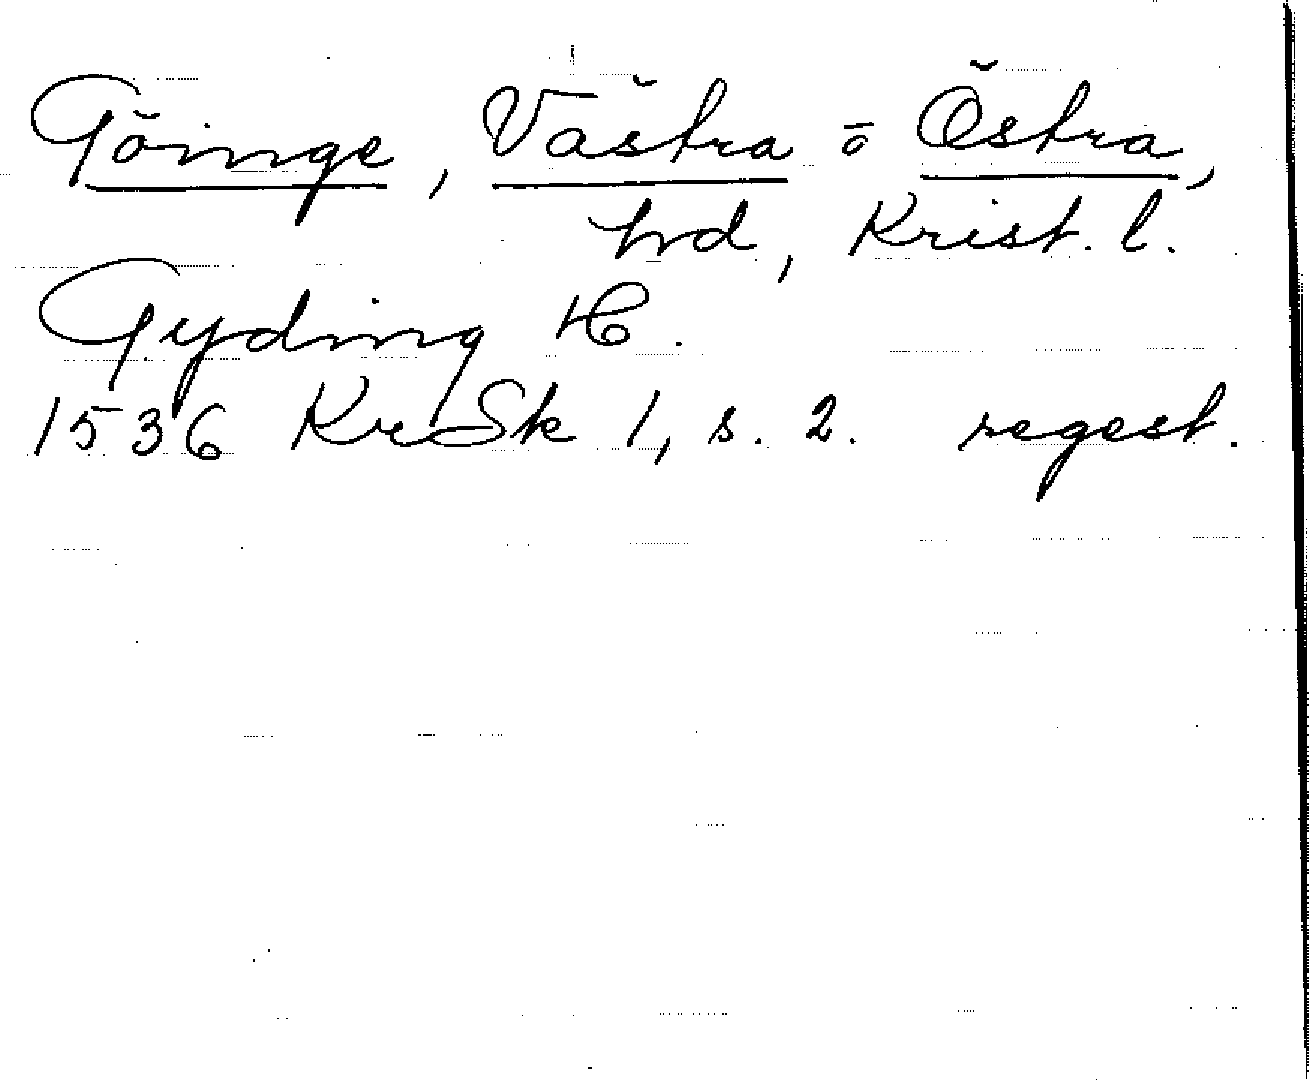 Göinge, Västra o Östra,
hrd, Krist. l.
Gyding H.
1536 KrSk 1, s. 2. regest.